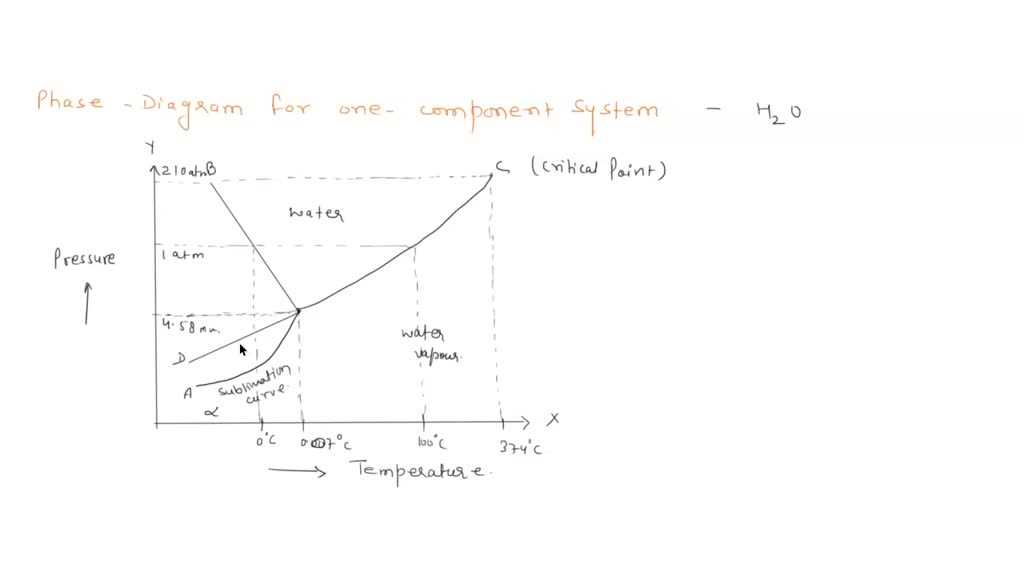 Phase - Diagram for one- component system - H2O
Y
210atm B
C (Critical Point)
water
1 atm
Pressure
4.58mm
water
vapour.
D
A
sublimation
curve
α
X
0°C
100°C
374°C
Temperature.